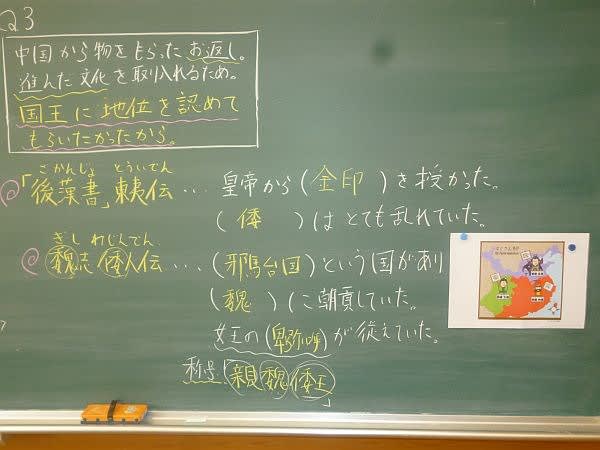 Q3
中国から物をもらったお返し。
進んだ文化を取り入れるため。
国王に地位を認めて
もらいたかったから。
ごかんじょ とういでん
「後漢書」東夷伝… 皇帝から(金印 )を授かった。
(倭 )はとても乱れていた。
ぎし わじんでん
魏志倭人伝… (邪馬台国)という国があり
(魏 )に朝貢していた。
女王の(卑弥呼)が従えていた。
称号「親魏倭王」